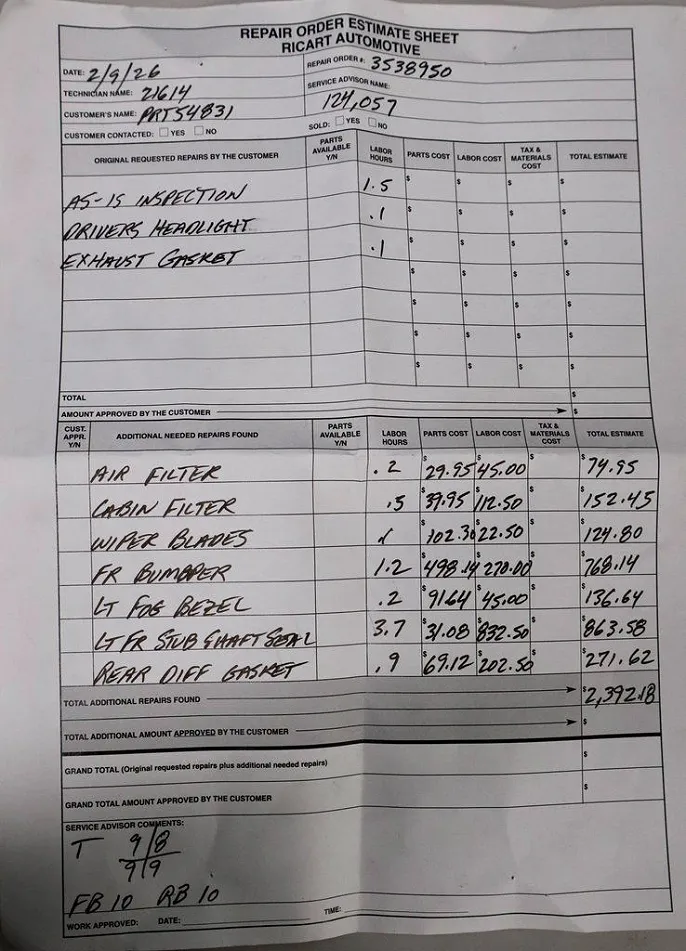 REPAIR ORDER ESTIMATE SHEET
RICART AUTOMOTIVE
DATE: 2/9/26
REPAIR ORDER #: 3538950
TECHNICIAN NAME: 21614
SERVICE ADVISOR NAME:
124,057
CUSTOMER'S NAME: PRT54831
CUSTOMER CONTACTED: YES NO
SOLD: YES NO
ORIGINAL REQUESTED REPAIRS BY THE CUSTOMER PARTS AVAILABLE Y/N LABOR HOURS PARTS COST LABOR COST TAX & MATERIALS COST TOTAL ESTIMATE
AS-IS INSPECTION 1.5 $ $ $ $
DRIVERS HEADLIGHT .1 $ $ $ $
EXHAUST GASKET .1 $ $ $ $
$ $ $ $
$ $ $ $
$ $ $ $
$ $ $ $
TOTAL $
AMOUNT APPROVED BY THE CUSTOMER $
CUST. APPR. Y/N ADDITIONAL NEEDED REPAIRS FOUND PARTS AVAILABLE Y/N LABOR HOURS PARTS COST LABOR COST TAX & MATERIALS COST TOTAL ESTIMATE
AIR FILTER .2 $29.95 $45.00 $ $74.95
CABIN FILTER .5 $39.95 $112.50 $ $152.45
WIPER BLADES $102.30 $22.50 $ $124.80
FR BUMBPER 1.2 $498.14 $270.00 $ $768.14
LT FOG BEZEL .2 $91.64 $45.00 $ $136.64
LT FR STUB SHAFT SEAL 3.7 $31.08 $832.50 $ $863.58
REAR DIFF GASKET .9 $69.12 $202.50 $ $271.62
TOTAL ADDITIONAL REPAIRS FOUND $2,392.18
TOTAL ADDITIONAL AMOUNT APPROVED BY THE CUSTOMER $
GRAND TOTAL (Original requested repairs plus additional needed repairs) $
GRAND TOTAL AMOUNT APPROVED BY THE CUSTOMER $
SERVICE ADVISOR COMMENTS:
T 9/8
9/9
FB 10 RB 10
WORK APPROVED: DATE: TIME: